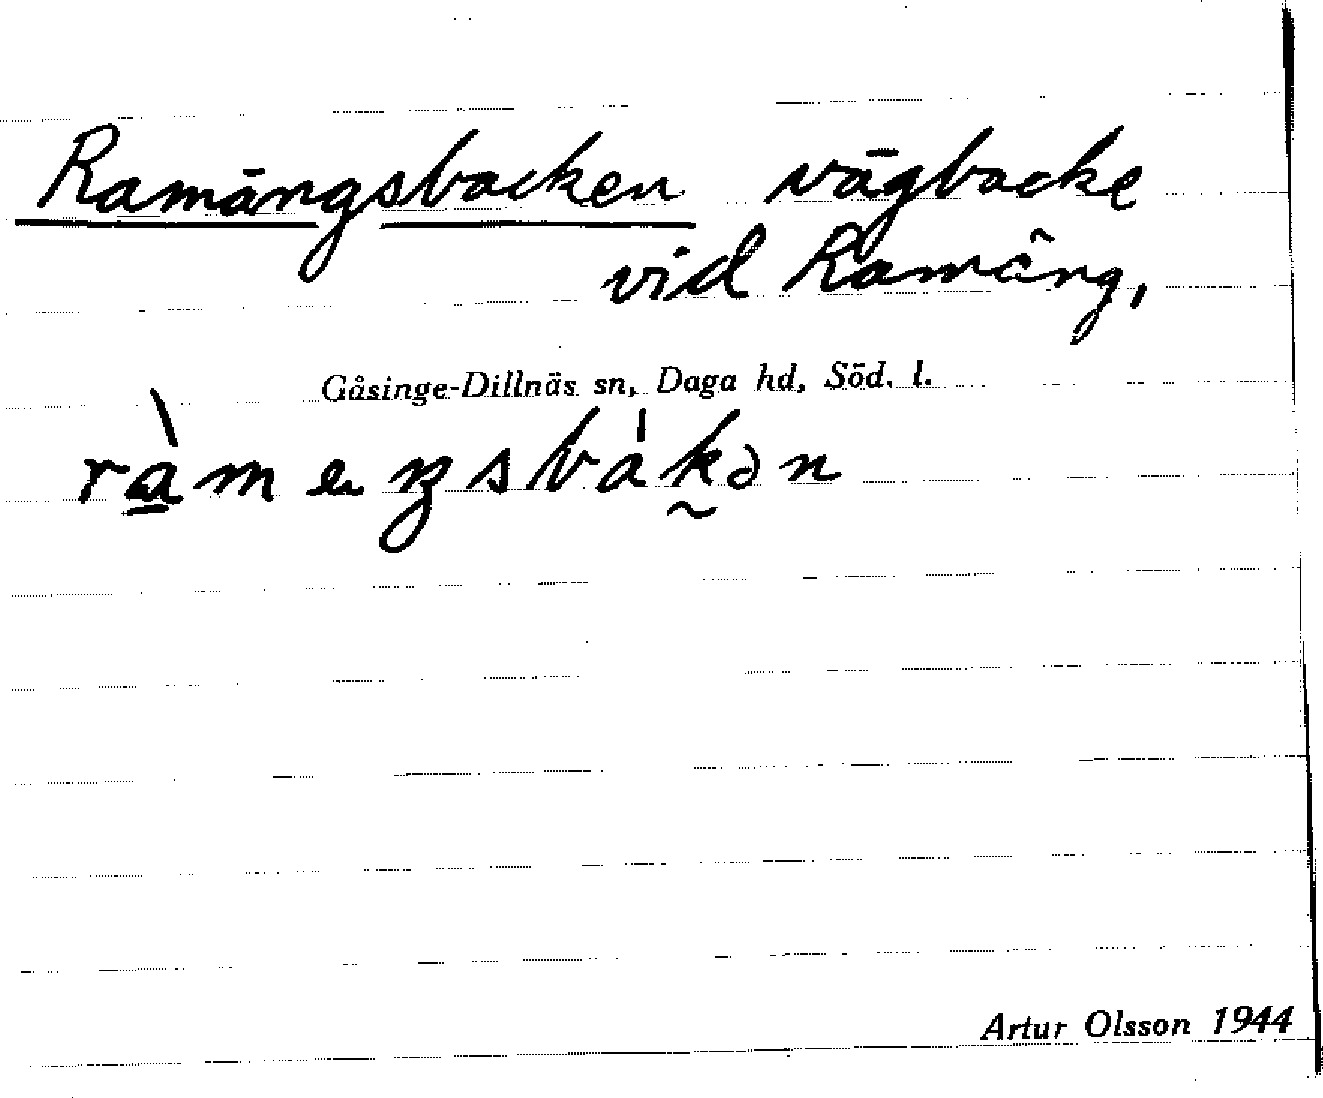 Ramängsbacken vägbacke
vid Ramäng,
Gåsinge-Dillnäs sn, Daga hd, Söd. l.
ràmeŋsbákən
Artur Olsson 1944